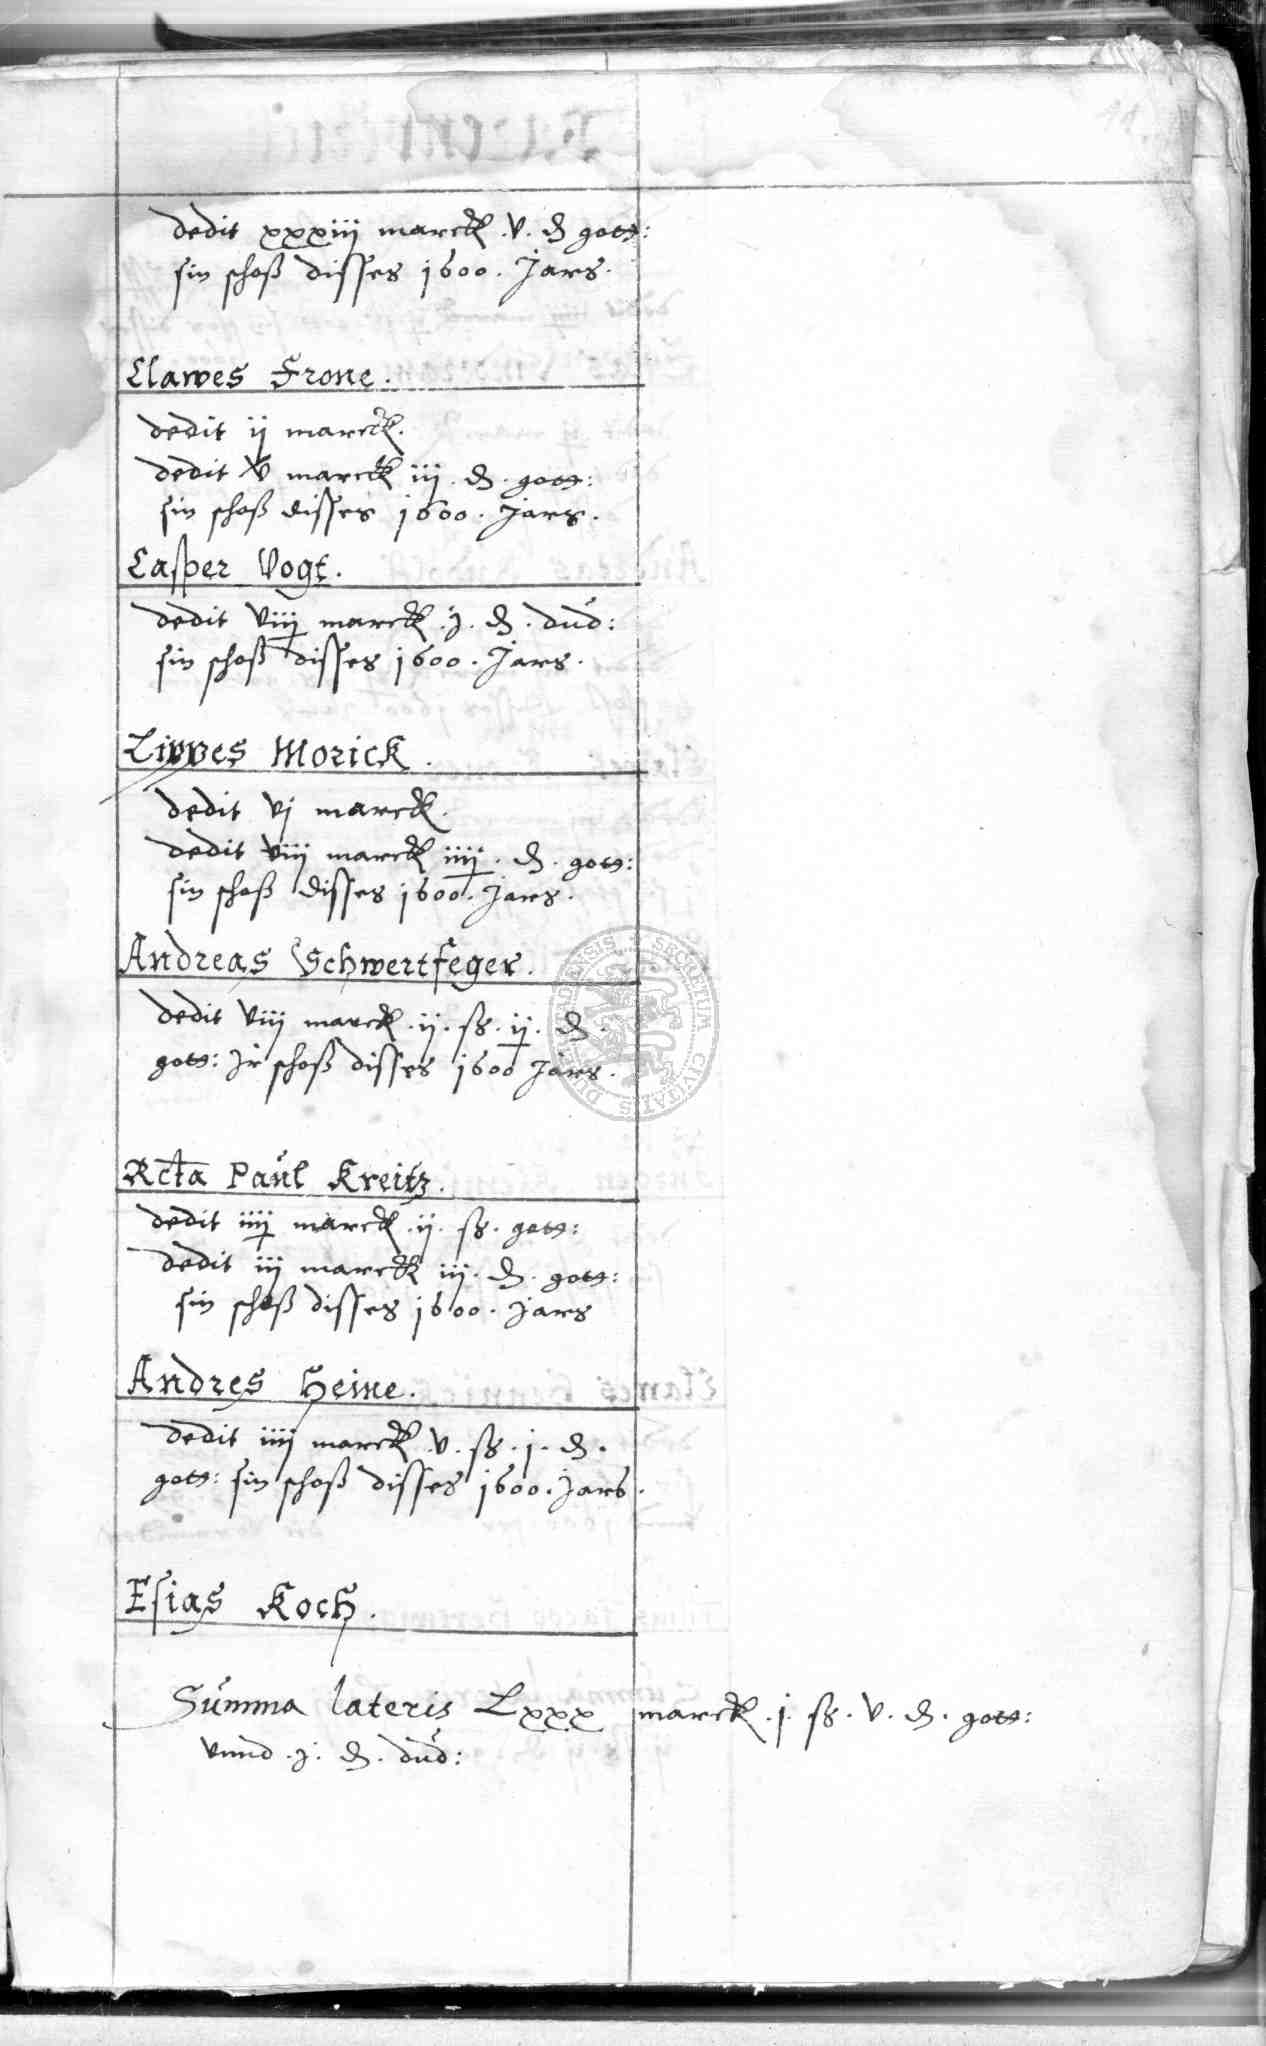 44
dedit xxxiij marck .v. ₰ gott:
sin schoß disses 1600. Jars.
Clawes Frone.
dedit ij marck.
dedit v marck iij . ₰ . gott:
sin schoß disses 1600. Jars.
Casper Vogt.
dedit viij marck .j. ₰ . dud:
sin schoß disses 1600. Jars.
Lippes Morick.
dedit vj marck.
dedit viij marck iiij . ₰ . gott:
sin schoß disses 1600. Jars.
Andreas Schwertfeger.
dedit viij marck .ij. ß .ij. ₰ .
gott: Jr schoß disses 1600 Jars.
Rcta Paul Kreitz.
dedit iiij marck .ij. ß . gott:
dedit iij marck iij . ₰ . gott:
sin schoß disses 1600. Jars
Andres Heine.
dedit iiij marck .v. ß .j. ₰ .
gott: sin schoß disses 1600. Jars.
Esias Koch.
Summa lateris Lxxx marck .j. ß .v. ₰ . gott:
vnnd .j. ₰ . dud:
SECRETUM CIVITATIS DUDERSTADENSIS